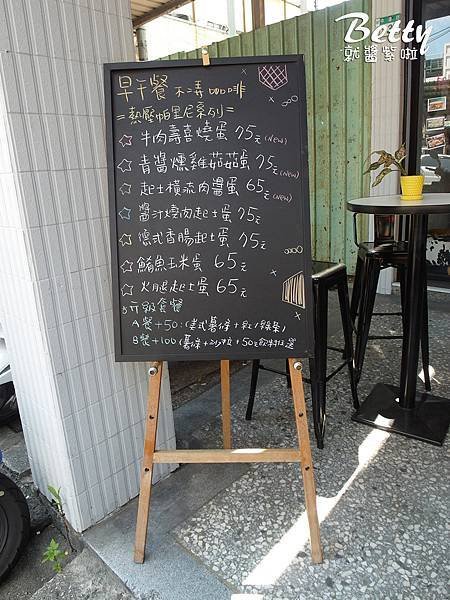 Betty
就醬紫啦
早午餐 不專咖啡
=熱壓帕里尼系列=
☆ 牛肉壽喜燒蛋 75元(New)
☆ 青醬燻雞菇菇蛋 75元(New)
☆ 起士橫流肉醬蛋 65元(New)
☆ 醬汁燒肉起士蛋 75元
☆ 德式香腸起士蛋 75元
☆ 鮪魚玉米蛋 65元
☆ 火腿起士蛋 65元
升級套餐
A餐+50:(美式薯條+紅/綠茶)
B餐+100(薯條+沙拉+50元飲料任選